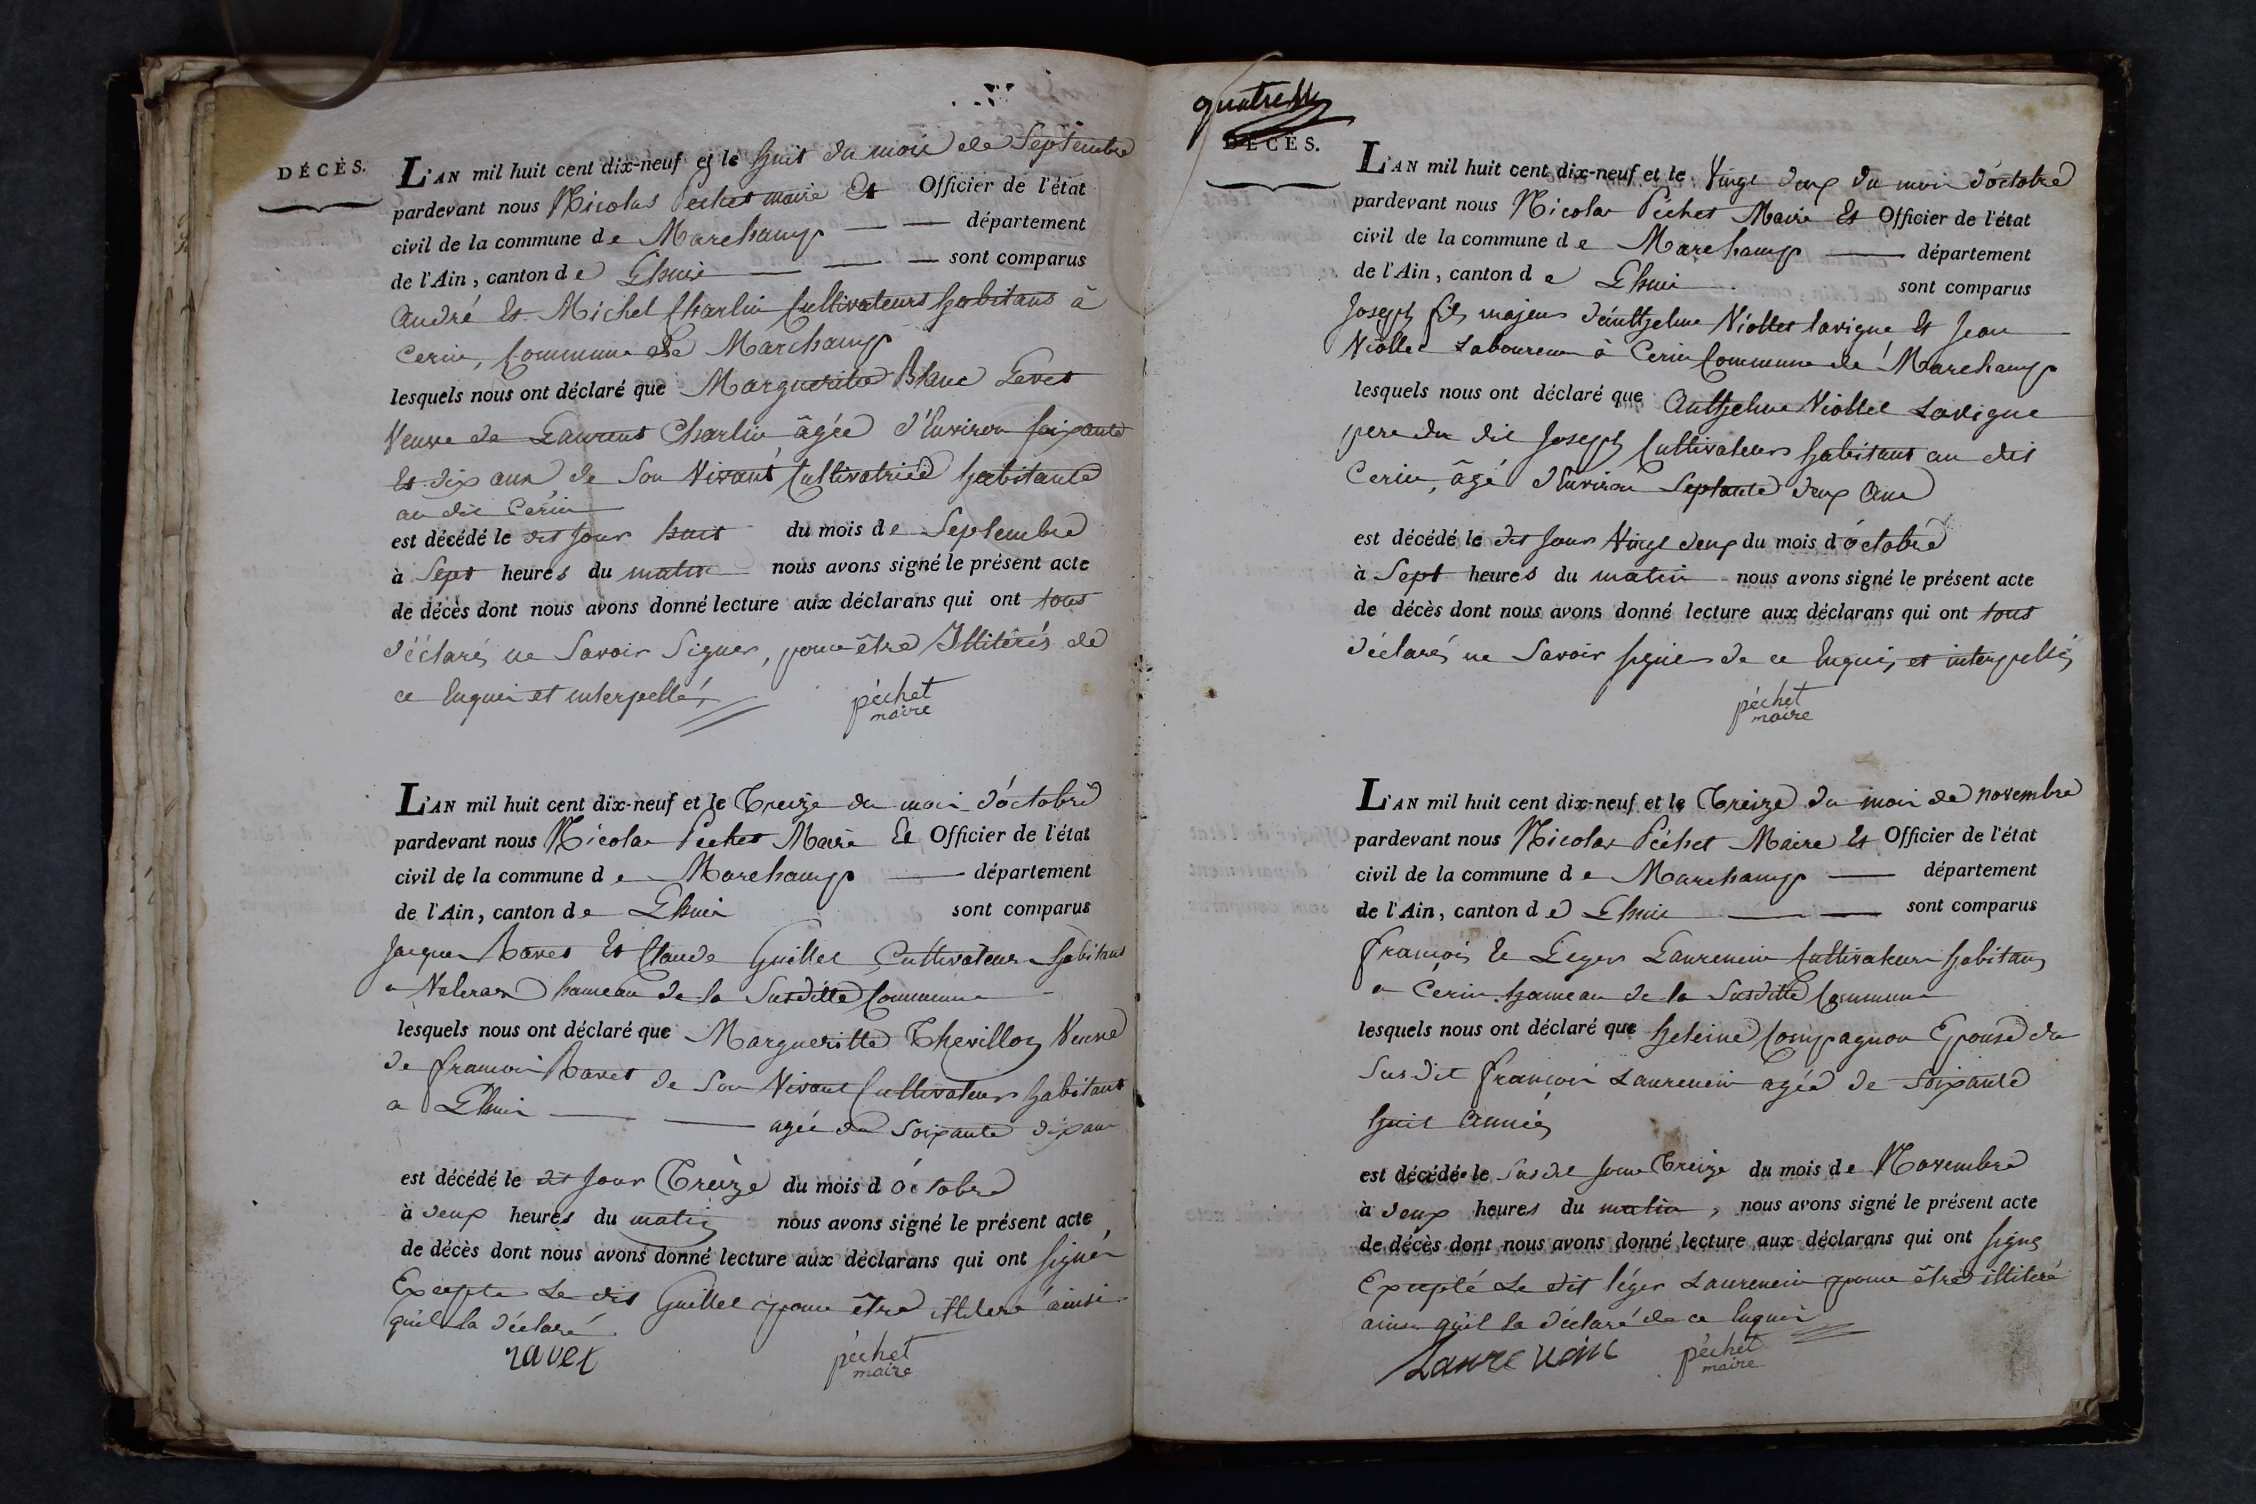 DÉCÈS.
L'AN mil huit cent dix-neuf et le huit du mois de Septembre
pardevant nous Nicolas Pechet maire Et Officier de l'état
civil de la commune de Marchamp département
de l'Ain, canton de Lhuis sont comparus
André Et Michel Charlin Cultivateurs habitans à
Cerin, Commune de Marchamp
lesquels nous ont déclaré que Margueritte Blanc Levet
Veuve de Laurent Charlin âgée d'Environ soixante
Et dix ans de Son Vivant Cultivatrice habitante
au dit Cerin
est décédé le dit Jour huit du mois de Septembre
à Sept heures du matin nous avons signé le présent acte
de décès dont nous avons donné lecture aux déclarans qui ont tous
déclarés ne Savoir Signer, pour être Illitérés de
ce Enquis et interpellés
péchet
maire
L'AN mil huit cent dix-neuf et le Treize du mois d'óctobre
pardevant nous Nicolas Pechet Maire Et Officier de l'état
civil de la commune de Marchamp département
de l'Ain, canton de Lhuis sont comparus
Jacques Ravet Et Claude Guillet Cultivateurs habitans
a hameau de la Susditte Commune
lesquels nous ont déclaré que Margueritte Thevillon Veuve
de françois Ravet de Son Vivant Cultivateur habitant
a Lhuis agée de Soixante dix ans
est décédé le dit Jour Treize du mois d'óctobre
à deux heures du matin nous avons signé le présent acte
de décès dont nous avons donné lecture aux déclarans qui ont signés
Excepte Le dit Guillet pour être illiteré ainsi
quil la déclaré
ravet
péchet
maire
DÉCÈS.
L'AN mil huit cent dix-neuf et le Vingt deux du mois d'óctobre
pardevant nous Nicolas Péchet Maire Et Officier de l'état
civil de la commune de Marchamp département
de l'Ain, canton de Lhuis sont comparus
Joseph fils majeur d'Anthelme Niollet Lavigne Et Jean
Niollet Laboureur à Cerin Commune de Marchamp
lesquels nous ont déclaré que Anthelme Niollet Lavigne
pere du dit Joseph Cultivateur habitant au dit
Cerin, âgé d'Environ Septante deux Ans
est décédé le dit Jour Vingt deux du mois d'óctobre
à Sept heures du matin nous avons signé le présent acte
de décès dont nous avons donné lecture aux déclarans qui ont tous
déclarés ne Savoir signer de ce Enquis et interpellés
péchet
maire
L'AN mil huit cent dix-neuf et le Treize du mois de novembre
pardevant nous Nicolas Péchet Maire Et Officier de l'état
civil de la commune de Marchamp département
de l'Ain, canton de Lhuis sont comparus
françois Et Leger Laurencin Cultivateurs habitans
a Cerin hameau de la Susditte Commune
lesquels nous ont déclaré que heleine Compagnon Epouse du
Susdit françois Laurencin agée de Soixante
huit Années
est décédé le Susdit jour Treize du mois de Novembre
à deux heures du matin, nous avons signé le présent acte
de décès dont nous avons donné lecture aux déclarans qui ont signes
Excepté Le dit léger Laurencin pour être illiteré
ainsi qu'il la déclaré de ce Enquis
Laurencin
péchet
maire